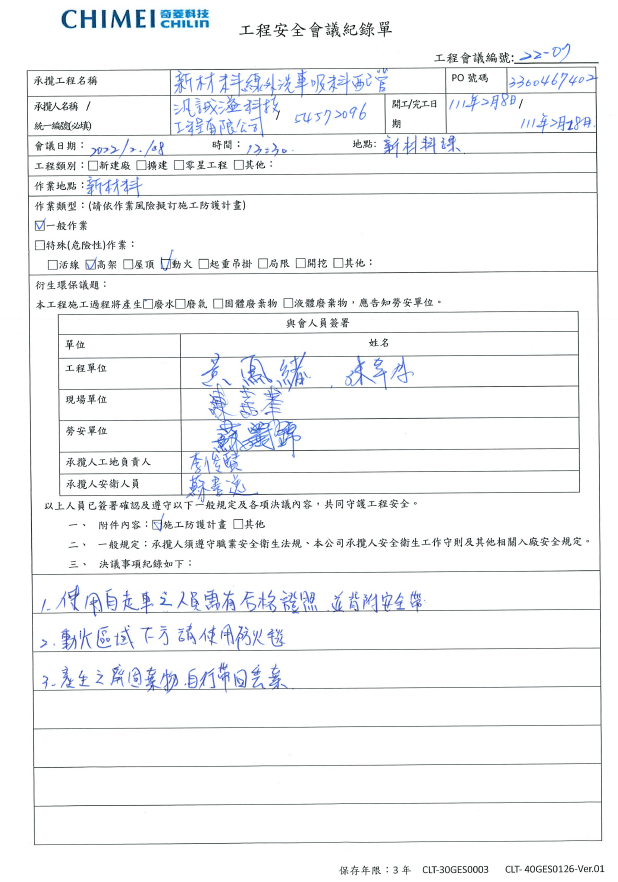 CHIMEI 奇菱科技 CHILIN
工程安全會議紀錄單
工程會議編號: 22-07
承攬工程名稱 新材料線外洗車吸料配管 PO 號碼 3300467402
承攬人名稱 / 統一編號(必填) 汎誠滋科技工程有限公司 / 54572096 開工/完工日期 111年2月8日/ 111年2月28日.
會議日期: 2022/2/08 時間: 13:30. 地點: 新材料課
工程類別: □新建廠 □擴建 □零星工程 □其他:
作業地點: 新材料
作業類型: (請依作業風險擬訂施工防護計畫)
☑一般作業
□特殊(危險性)作業:
□活線 ☑高架 □屋頂 ☑動火 □起重吊掛 □局限 □開挖 □其他:
衍生環保議題:
本工程施工過程將產生□廢水□廢氣 □固體廢棄物 □液體廢棄物，應告知勞安單位。
與會人員簽署
單位 姓名
工程單位 黃鳳緒
現場單位
勞安單位
承攬人工地負責人 李俊賢
承攬人安衛人員
以上人員已簽署確認及遵守以下一般規定及各項決議內容，共同守護工程安全。
一、 附件內容: ☑施工防護計畫 □其他
二、 一般規定: 承攬人須遵守職業安全衛生法規、本公司承攬人安全衛生工作守則及其他相關入廠安全規定。
三、 決議事項紀錄如下:
1. 使用自走車之人員需有合格證照，並背附安全帶
2. 動火區域下方請使用防火毯
3. 產生之廢固棄物，自行帶回丟棄
保存年限: 3 年 CLT-30GES0003 CLT- 40GES0126-Ver.01